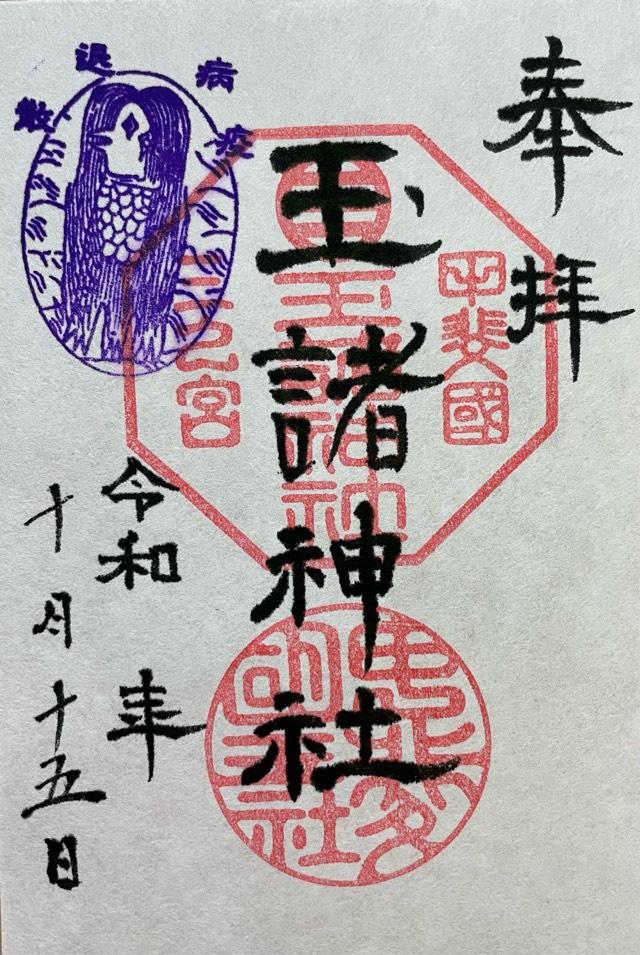 奉拝
甲斐國
玉諸神社
三之宮
病疫
退散
令和 年
十月十五日